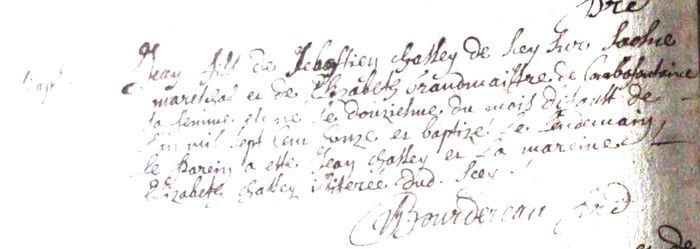 Bapt.
Jean fils de Sebastien Chassey de Scey sur Saone
mareschal et de Elizabeth Grandmaistre de Combefontaine
sa femme est né le douzieme du mois d'aoust de
l'an mil sept cent onze et baptizé le lendemain
le parein a esté Jean Chassey et la mareine
Elizabeth Chassey illiterée dud. Scey.
Bourdereau